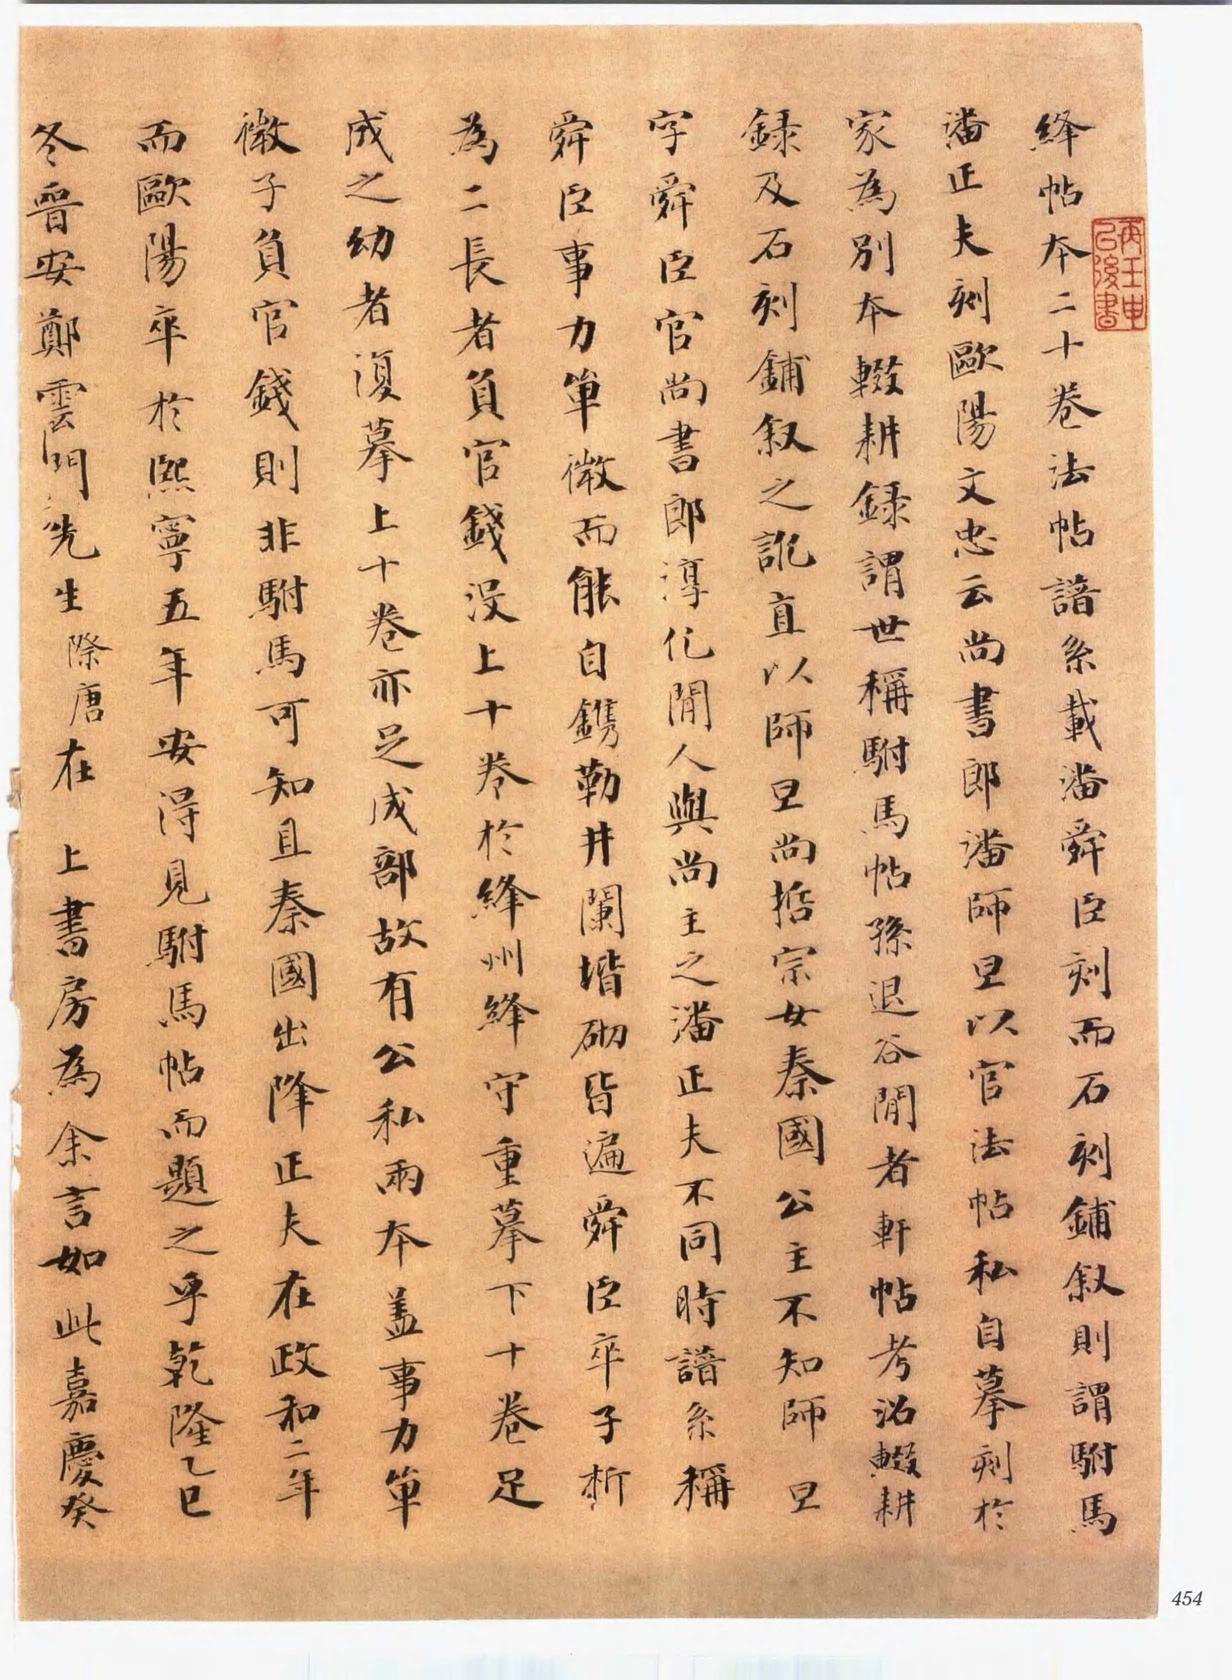 絳帖本二十卷法帖譜系載潘舜臣刻而石刻鋪叙則謂駙馬
潘正夫刻歐陽文忠云尚書郎潘師旦以官法帖私自摹刻於
家為別本輟耕録謂世稱駙馬帖孫退谷閒者軒帖考沿輟耕
録及石刻鋪叙之訛直以師旦尚哲宗女秦國公主不知師旦
字舜臣官尚書郎淳化間人與尚主之潘正夫不同時譜系稱
舜臣事力單微而能自鐫勒井闌堦砌皆遍舜臣卒子析
為二長者負官錢没上十卷於絳州絳守重摹下十卷足
成之幼者復摹上十卷亦足成部故有公私兩本盖事力單
微子負官錢則非駙馬可知且秦國出降正夫在政和二年
而歐陽卒於熙寧五年安得見駙馬帖而題之乎乾隆乙巳
冬晉安鄭雲門先生際唐在 上書房為余言如此嘉慶癸
丙壬申
已後書
454